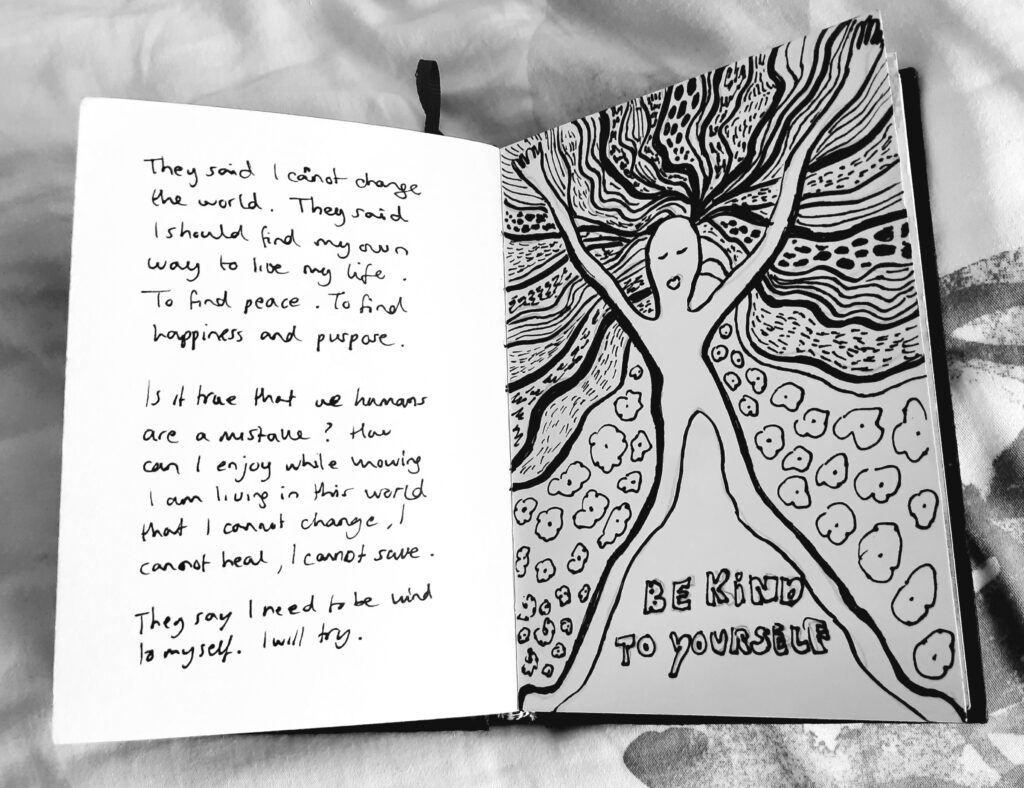 They said I cannot change
the world. They said
I should find my own
way to live my life.
To find peace. To find
happiness and purpose.
Is it true that we humans
are a mistake? How
can I enjoy while knowing
I am living in this world
that I cannot change, I
cannot heal, I cannot save.
They say I need to be kind
to myself. I will try.
BE KiND
TO YOURSELF